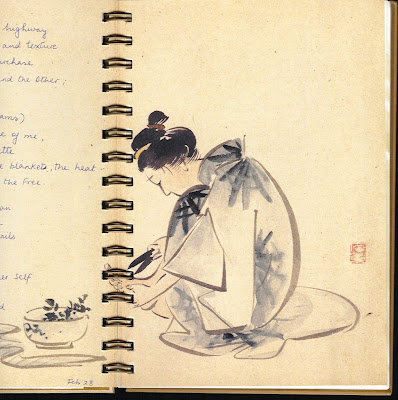 highway
and texture
urchase
and the Other;
ams)
e of me,
ette
e blankets, the heat
the free.
an
ails
er Self
d
Feb 28